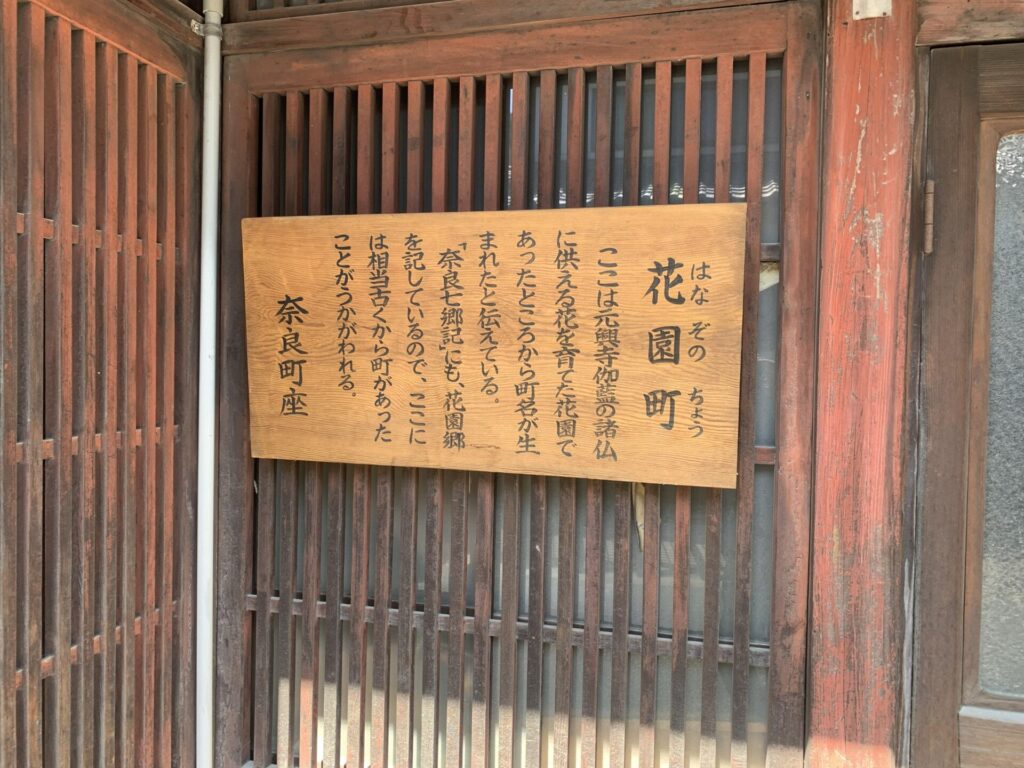 花園町
はなぞのちょう
ここは元興寺伽藍の諸仏
に供える花を育てた花園で
あったところから町名が生
まれたと伝えている。
「奈良七郷記」にも、花園郷
を記しているので、ここに
は相当古くから町があった
ことがうかがわれる。
奈良町座